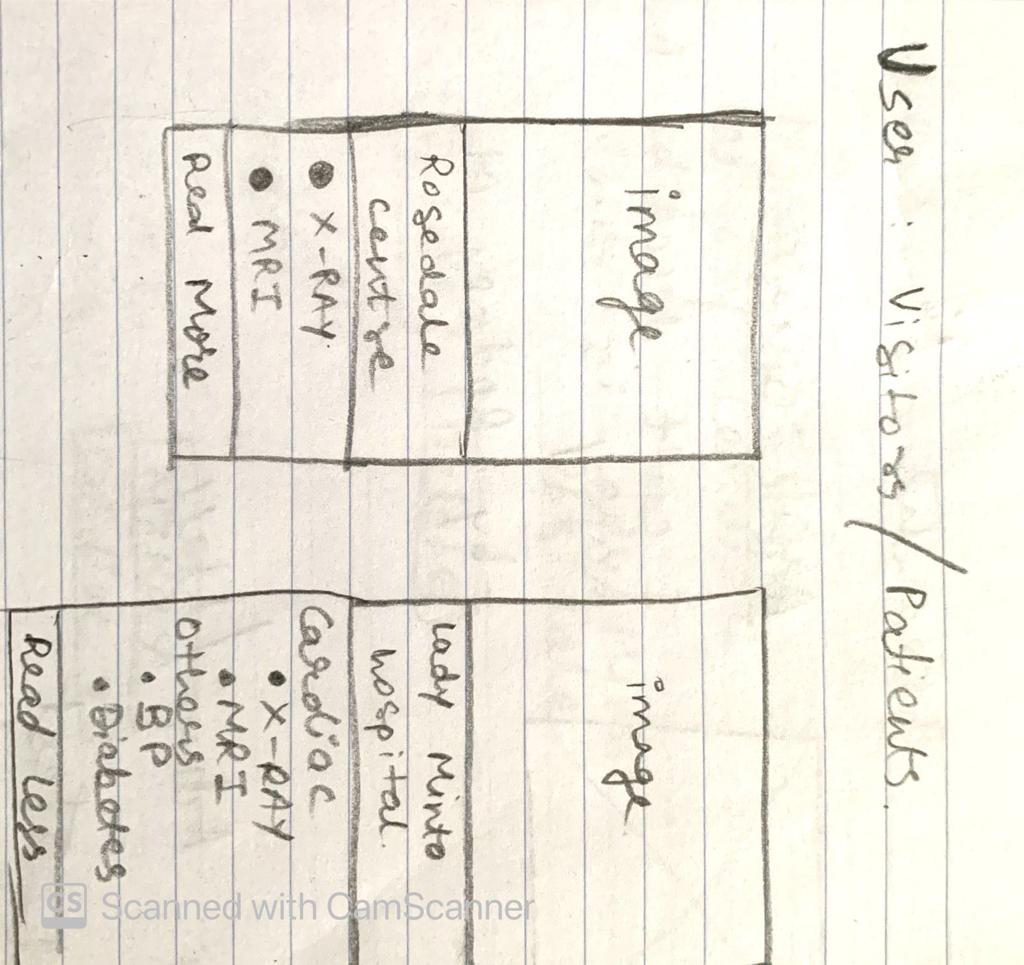 User : Visitors/Patients.
image
Rosedale
centre
• X-RAY
• MRI
Read More
image
Lady Minto
hospital
Cardiac
• X-RAY
• MRI
Others
• BP
• Diabetes
Read Less
CS Scanned with CamScanner